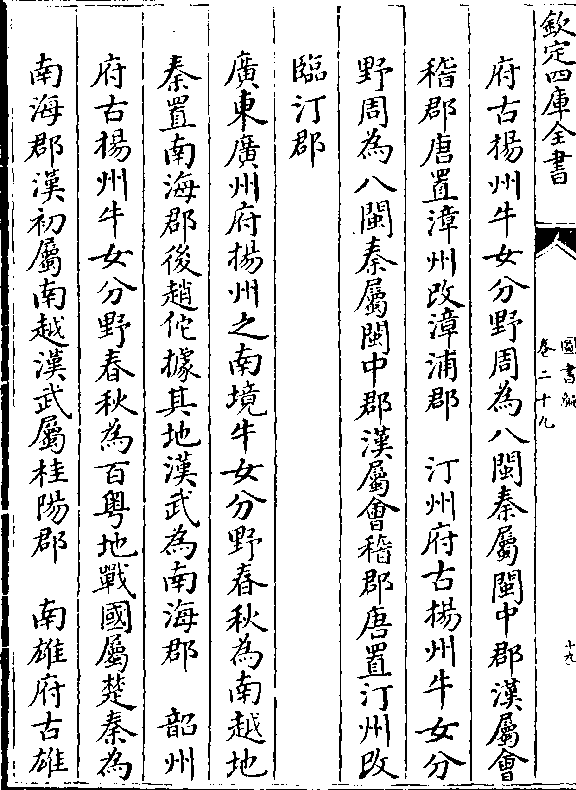 欽定四庫全書
圖書編
卷二十九
十九
府古揚州牛女分野周為八閩秦屬閩中郡漢屬會
稽郡唐置漳州改漳浦郡　汀州府古揚州牛女分
野周為八閩秦屬閩中郡漢屬會稽郡唐置汀州改
臨汀郡
廣東廣州府揚州之南境牛女分野春秋為南越地
秦置南海郡後趙佗據其地漢武為南海郡　韶州
府古揚州牛女分野春秋為百粤地戰國屬楚秦為
南海郡漢初屬南越漢武屬桂陽郡　南雄府古雄